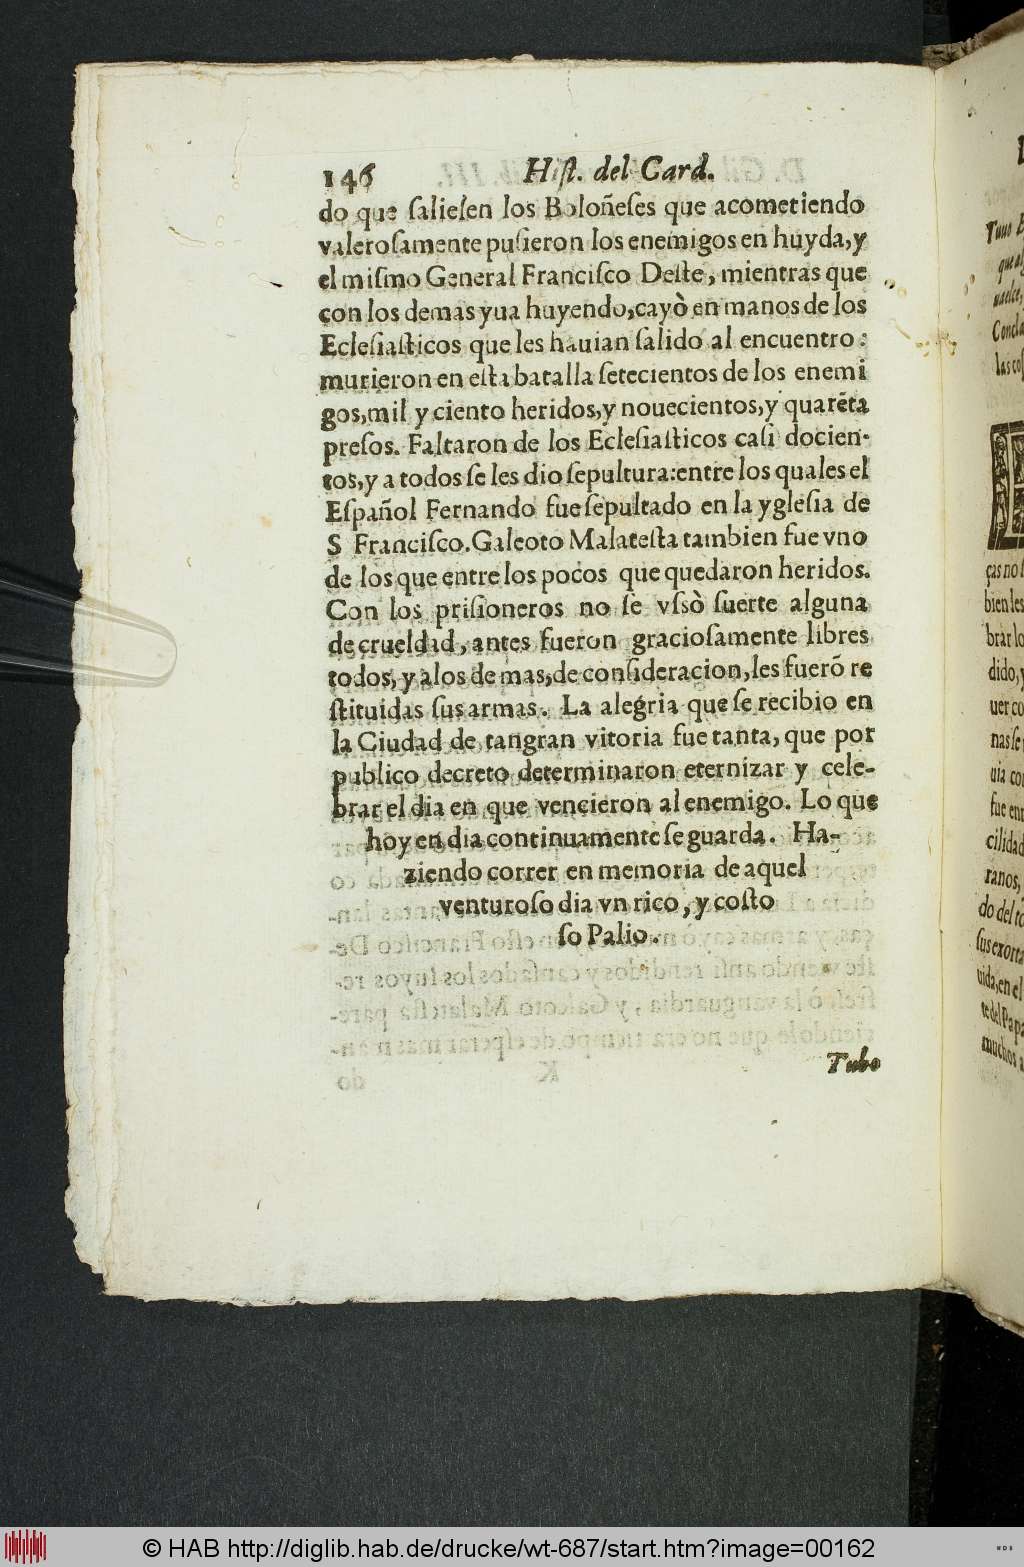 146 Hiſt. del Card.
do que ſalieſen los Boloñeſes que acometiendo
valeroſamente puſieron los enemigos en huyda, y
el miſmo General Franciſco Deſte, mientras que
con los demas yua huyendo, cayò en manos de los
Ecleſiaſticos que les hauian ſalido al encuentro:
murieron en eſta batalla ſetecientos de los enemi
gos, mil y ciento heridos, y nouecientos, y quarẽta
preſos. Faltaron de los Ecleſiaſticos caſi docien-
tos, y a todos ſe les dio ſepultura: entre los quales el
Eſpañol Fernando fue ſepultado en la ygleſia de
S Franciſco. Galeoto Malateſta tambien fue vno
de los que entre los pocos que quedaron heridos.
Con los priſioneros no ſe vſsò ſuerte alguna
de crueldad, antes fueron gracioſamente libres
todos, y alos de mas, de conſideracion, les fuerõ re
ſtituidas ſus armas. La alegria que ſe recibio en
la Ciudad de tangran vitoria fue tanta, que por
publico decreto determinaron eternizar y cele-
brar el dia en que vencieron al enemigo. Lo que
hoy en dia continuamente ſe guarda. Ha-
ziendo correr en memoria de aquel
venturoſo dia vn rico, y coſto
ſo Palio.
Tubo
ças no
bien les
brar lo
dido, y
uer co
nas ſe
uia co
fue en
cilidad
ranos,
do del
ſus exorta
uida, en el
te del Papa
muchos a
© HAB http://diglib.hab.de/drucke/wt-687/start.htm?image=00162